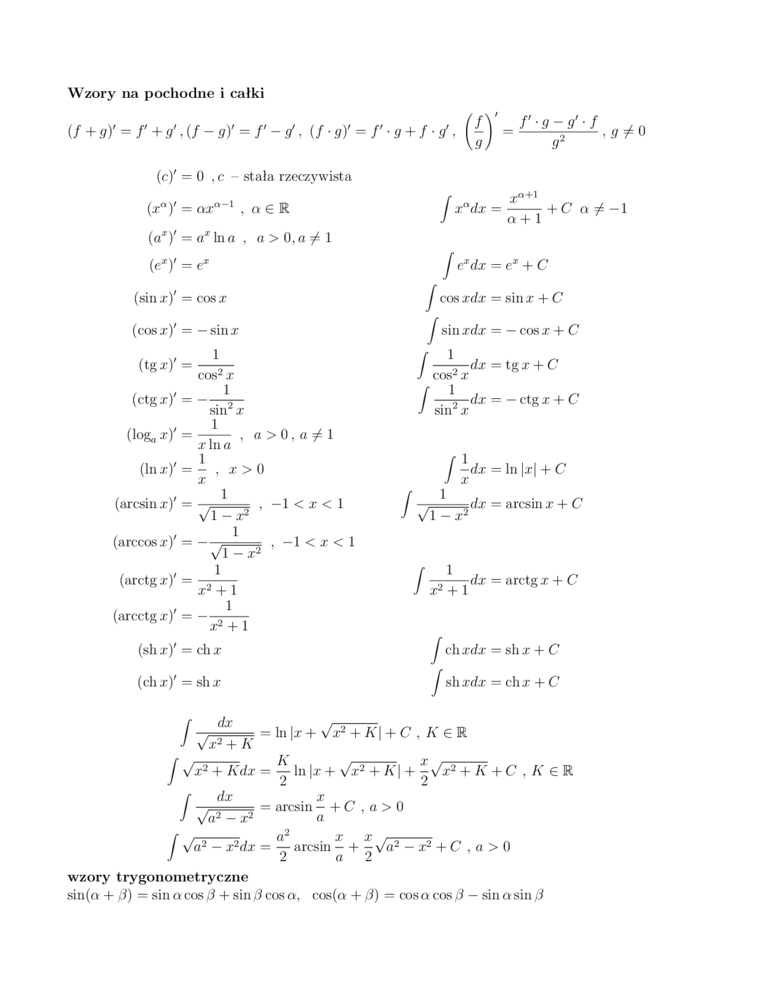 Wzory na pochodne i całki
(f + g)′ = f′ + g′ , (f − g)′ = f′ − g′ , (f · g)′ = f′ · g + f · g′ , (f/g)′ = (f′ · g − g′ · f)/g² , g ≠ 0
(c)′ = 0 , c – stała rzeczywista
(x^α)′ = αx^(α−1) , α ∈ ℝ ∫ x^α dx = x^(α+1)/(α + 1) + C α ≠ −1
(a^x)′ = a^x ln a , a > 0, a ≠ 1
(e^x)′ = e^x ∫ e^x dx = e^x + C
(sin x)′ = cos x ∫ cos xdx = sin x + C
(cos x)′ = − sin x ∫ sin xdx = − cos x + C
(tg x)′ = 1/cos² x ∫ 1/cos² x dx = tg x + C
(ctg x)′ = − 1/sin² x ∫ 1/sin² x dx = − ctg x + C
(log_a x)′ = 1/(x ln a) , a > 0 , a ≠ 1
(ln x)′ = 1/x , x > 0 ∫ 1/x dx = ln |x| + C
(arcsin x)′ = 1/√(1 − x²) , −1 < x < 1 ∫ 1/√(1 − x²) dx = arcsin x + C
(arccos x)′ = − 1/√(1 − x²) , −1 < x < 1
(arctg x)′ = 1/(x² + 1) ∫ 1/(x² + 1) dx = arctg x + C
(arcctg x)′ = − 1/(x² + 1)
(sh x)′ = ch x ∫ ch xdx = sh x + C
(ch x)′ = sh x ∫ sh xdx = ch x + C
∫ dx/√(x² + K) = ln |x + √(x² + K)| + C , K ∈ ℝ
∫ √(x² + K)dx = K/2 ln |x + √(x² + K)| + x/2 √(x² + K) + C , K ∈ ℝ
∫ dx/√(a² − x²) = arcsin x/a + C , a > 0
∫ √(a² − x²)dx = a²/2 arcsin x/a + x/2 √(a² − x²) + C , a > 0
wzory trygonometryczne
sin(α + β) = sin α cos β + sin β cos α, cos(α + β) = cos α cos β − sin α sin β